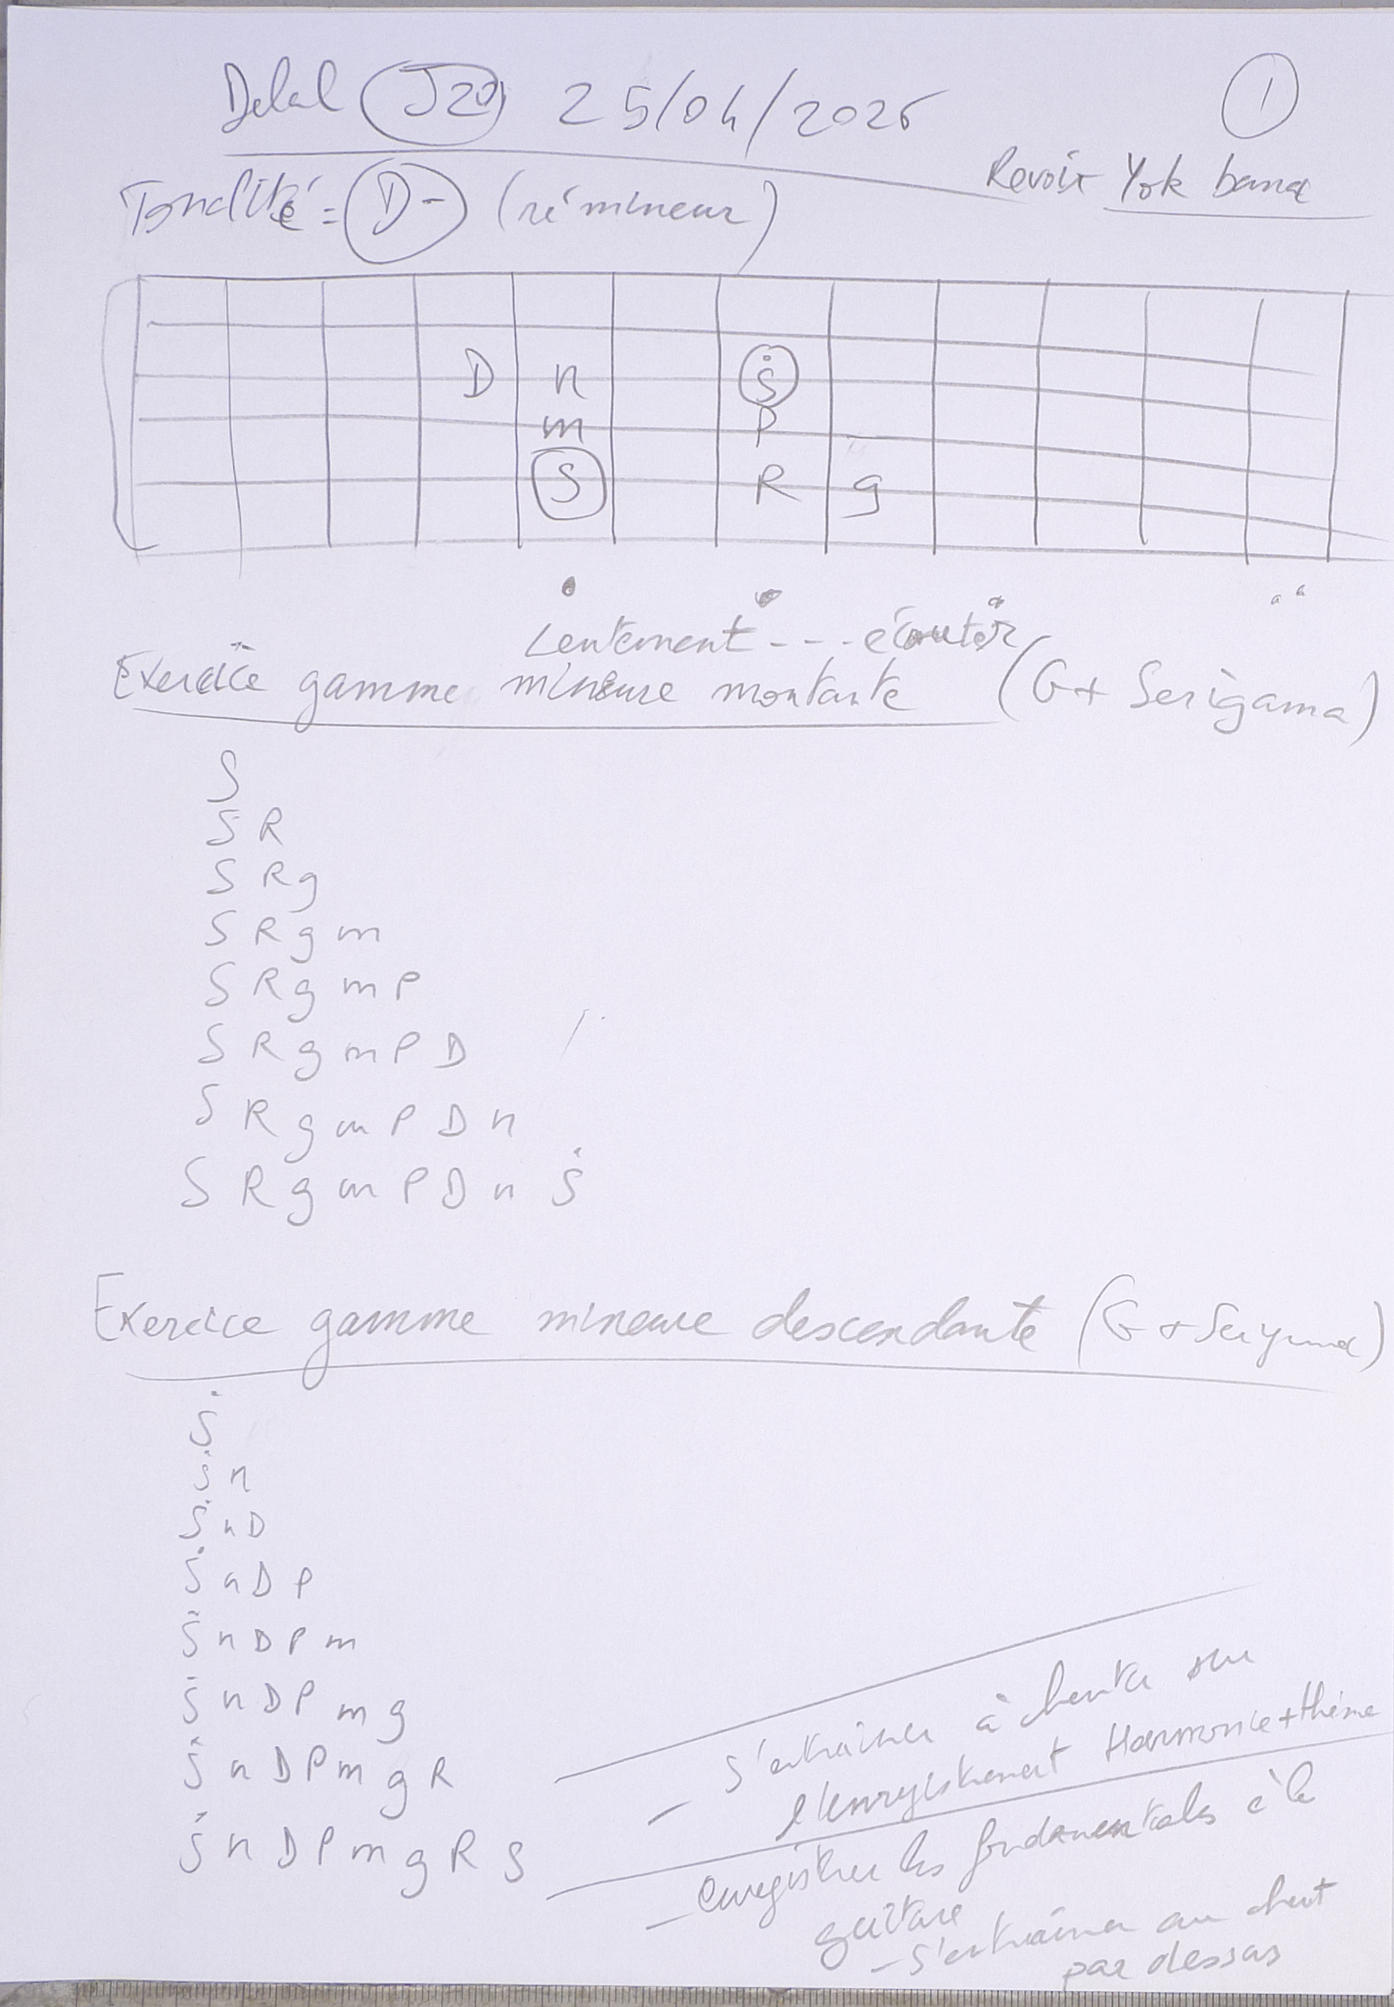 Delal J20 25/04/2026 1
Revoir Yok bana
Tonalité = D- (ré mineur)
D n Ṡ
m P
S R g
Lentement - - - écouter
Exercice gamme mineure montante (G+ Serigama)
S
S R
S R g
S R g m
S R g m P
S R g m P D
S R g m P D n
S R g m P D n Ṡ
Exercice gamme mineure descendante (G + Serigama)
Ṡ
Ṡ n
Ṡ n D
Ṡ n D P
Ṡ n D P m
Ṡ n D P m g
Ṡ n D P m g R
Ṡ n D P m g R S
- S'entraîner à chanter sur
l'enregistrement Harmonie + thème
- enregistrer les fondamentales à la
guitare
- S'entraîner au chant
par dessus